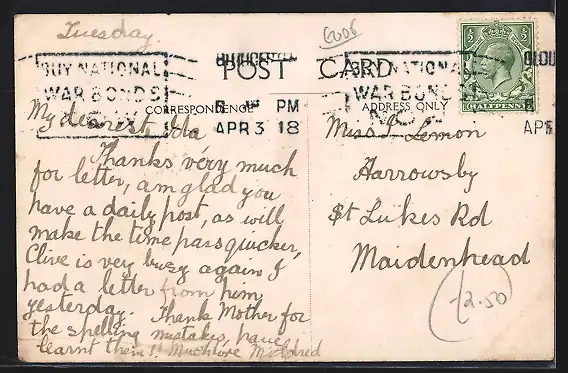 Tuesday.
6006
BUY NATIONAL
WAR BONDS
POST CARD
CORRESPONDENCE
ADDRESS ONLY
PM
APR 3 18
WAR BONDS
HALFPENNY
APR
My dearest Ida
Thanks very much
for letter, am glad you
have a daily post, as will
make the time pass quicker,
Clive is very busy again I
had a letter from him
yesterday. Thank Mother for
the spelling mistakes, have
learnt them! Much love Mildred
Miss I. Lemon
Harrowsby
St Lukes Rd
Maidenhead
12.50